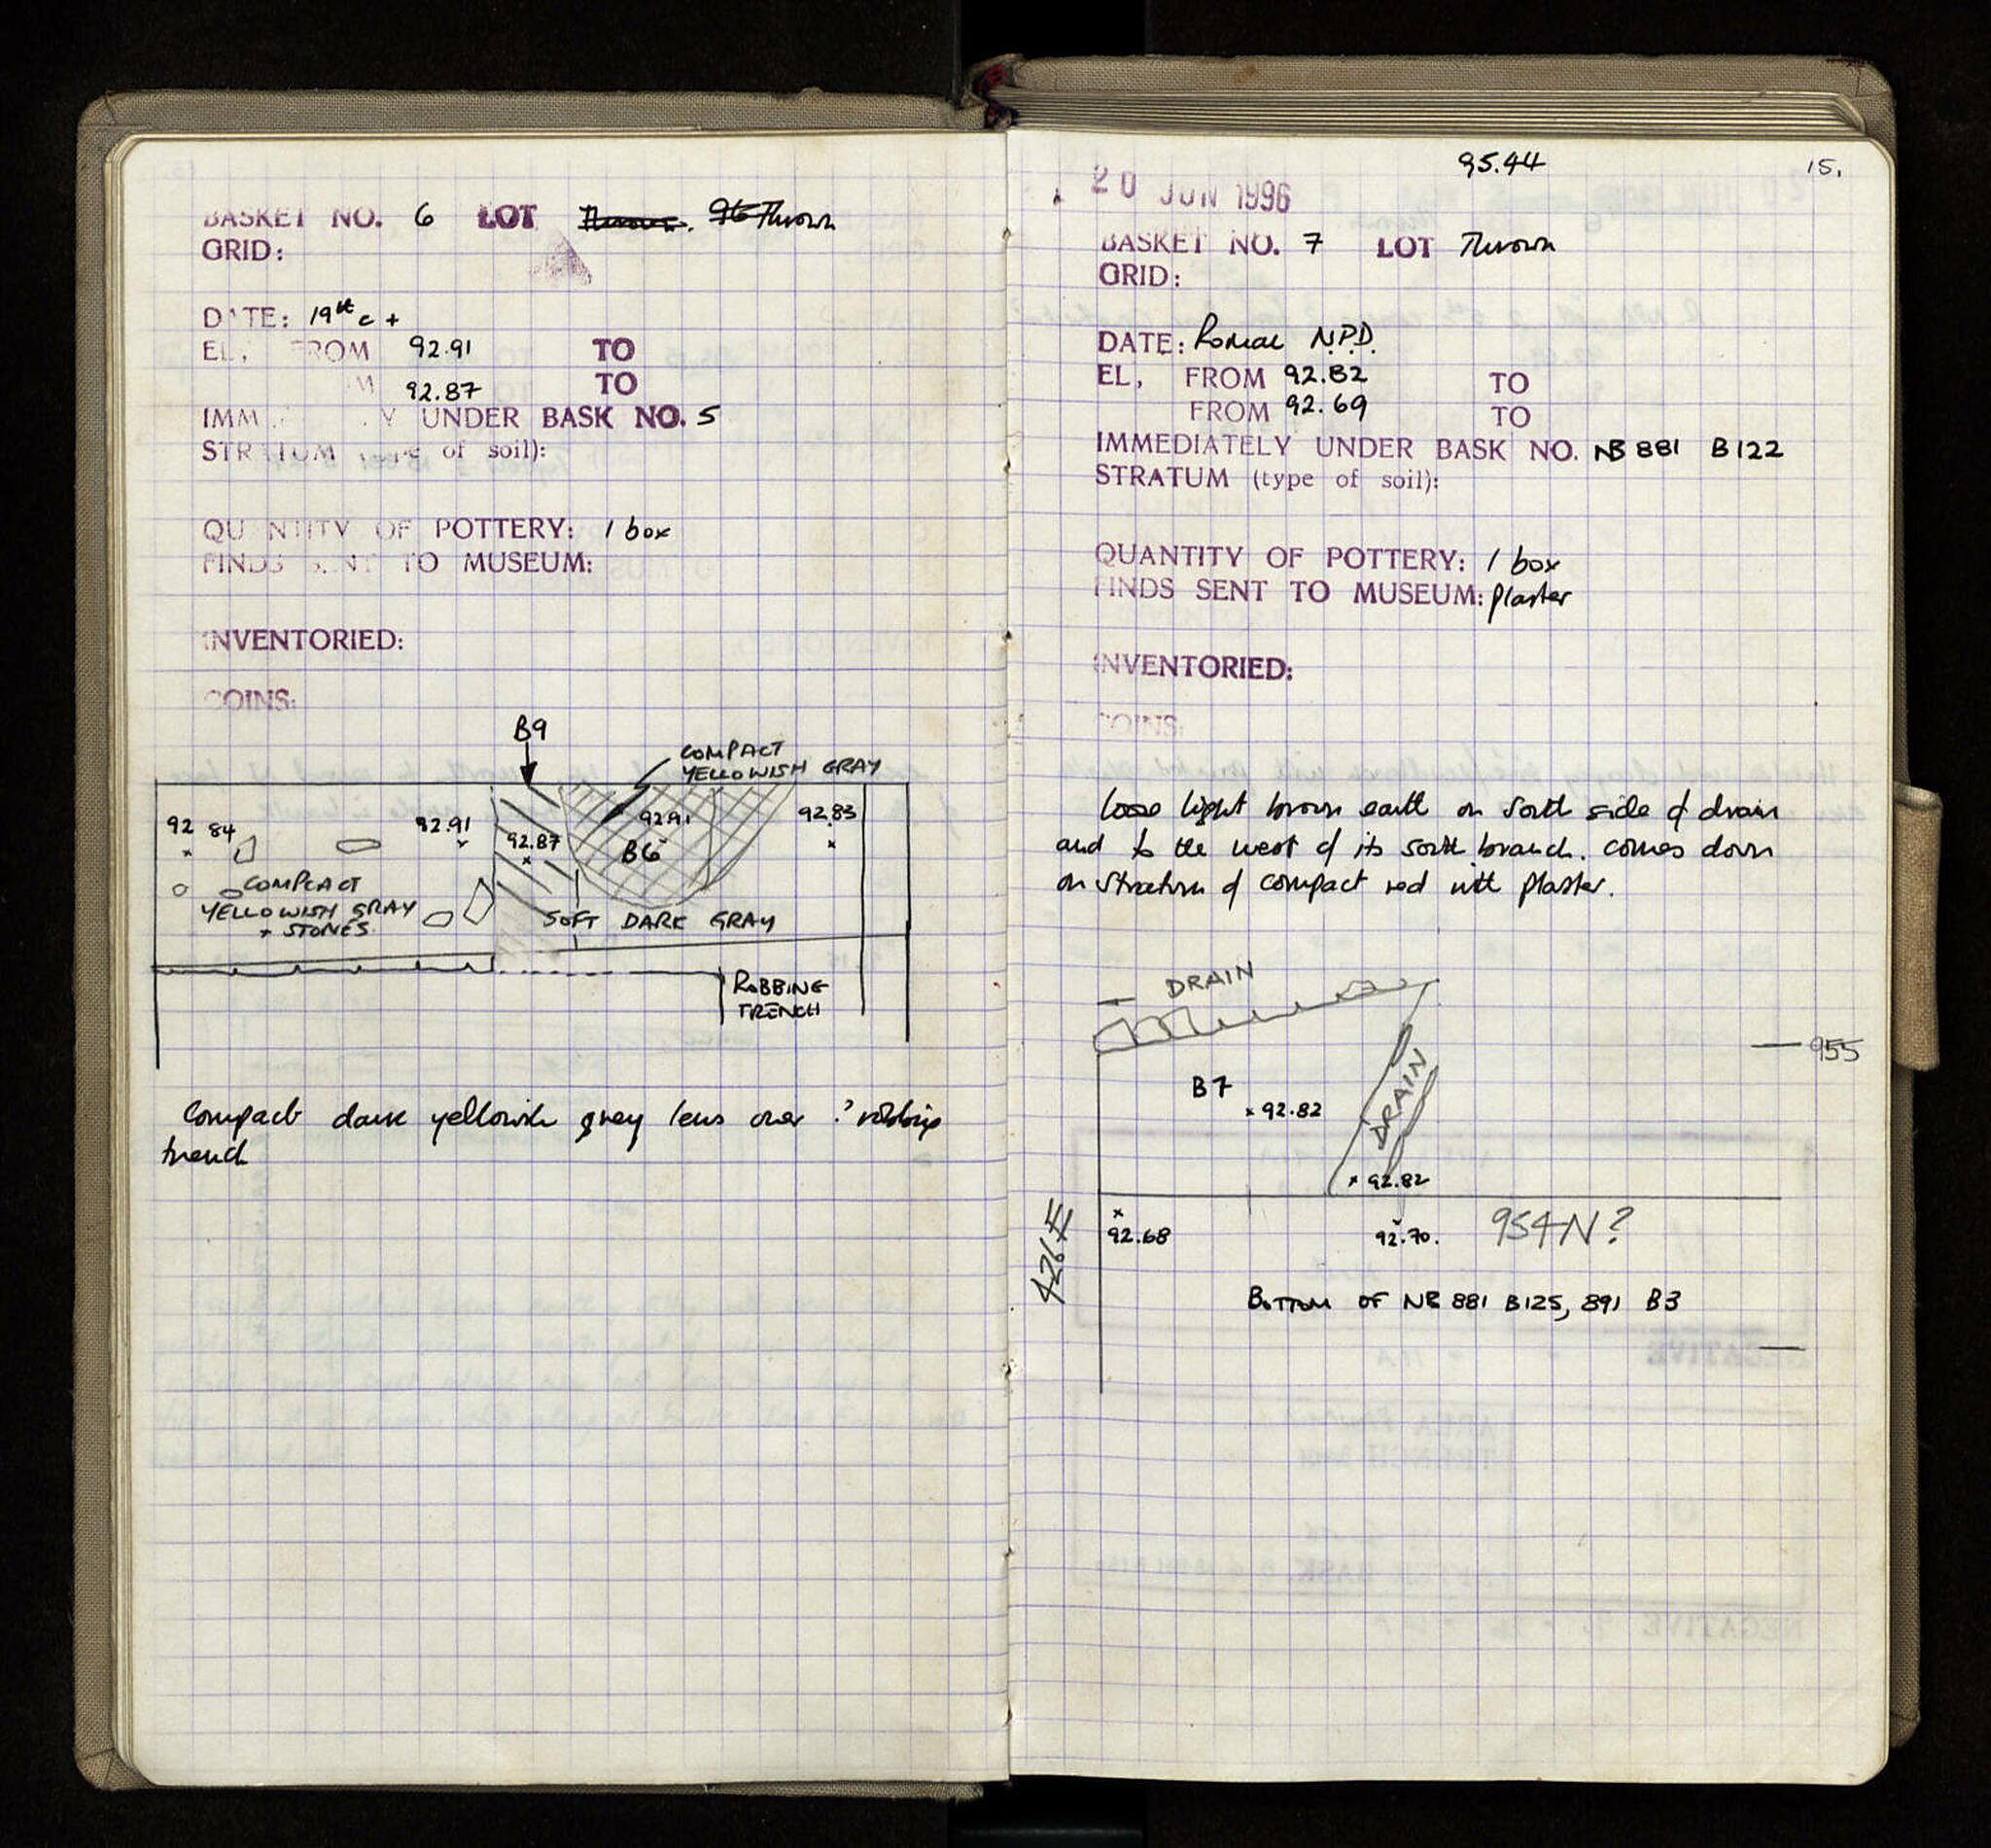 BASKET NO. 6 LOT Thrown. 96 Thrown
GRID:
DATE: 19th c +
EL, FROM 92.91 TO
M 92.87 TO
IMM Y UNDER BASK NO. 5
STRATUM (type of soil):
QUANTITY OF POTTERY: 1 box
FINDS SENT TO MUSEUM:
INVENTORIED:
COINS:
B9
COMPACT
YELLOWISH GRAY
92 84
92.91
92.87
92.91
B6
92.83
COMPCACT
YELLOWISH GRAY
+ STONES
SOFT DARK GRAY
ROBBING
TRENCH
Compact dark yellowish grey lens over ? robbing
trench
95.44
15.
20 JUN 1996
BASKET NO. 7 LOT Thrown
GRID:
DATE: Roman N.P.D.
EL, FROM 92.82 TO
FROM 92.69 TO
IMMEDIATELY UNDER BASK NO. NB 881 B122
STRATUM (type of soil):
QUANTITY OF POTTERY: 1 box
FINDS SENT TO MUSEUM: plaster
INVENTORIED:
COINS:
loose light brown earth on south side of drain
and to the west of its south branch. comes down
on stratum of compact red with plaster.
DRAIN
955
B7
92.82
DRAIN
92.82
426 E
92.68
92.70.
954 N?
BOTTOM OF NB 881 B125, 891 B3